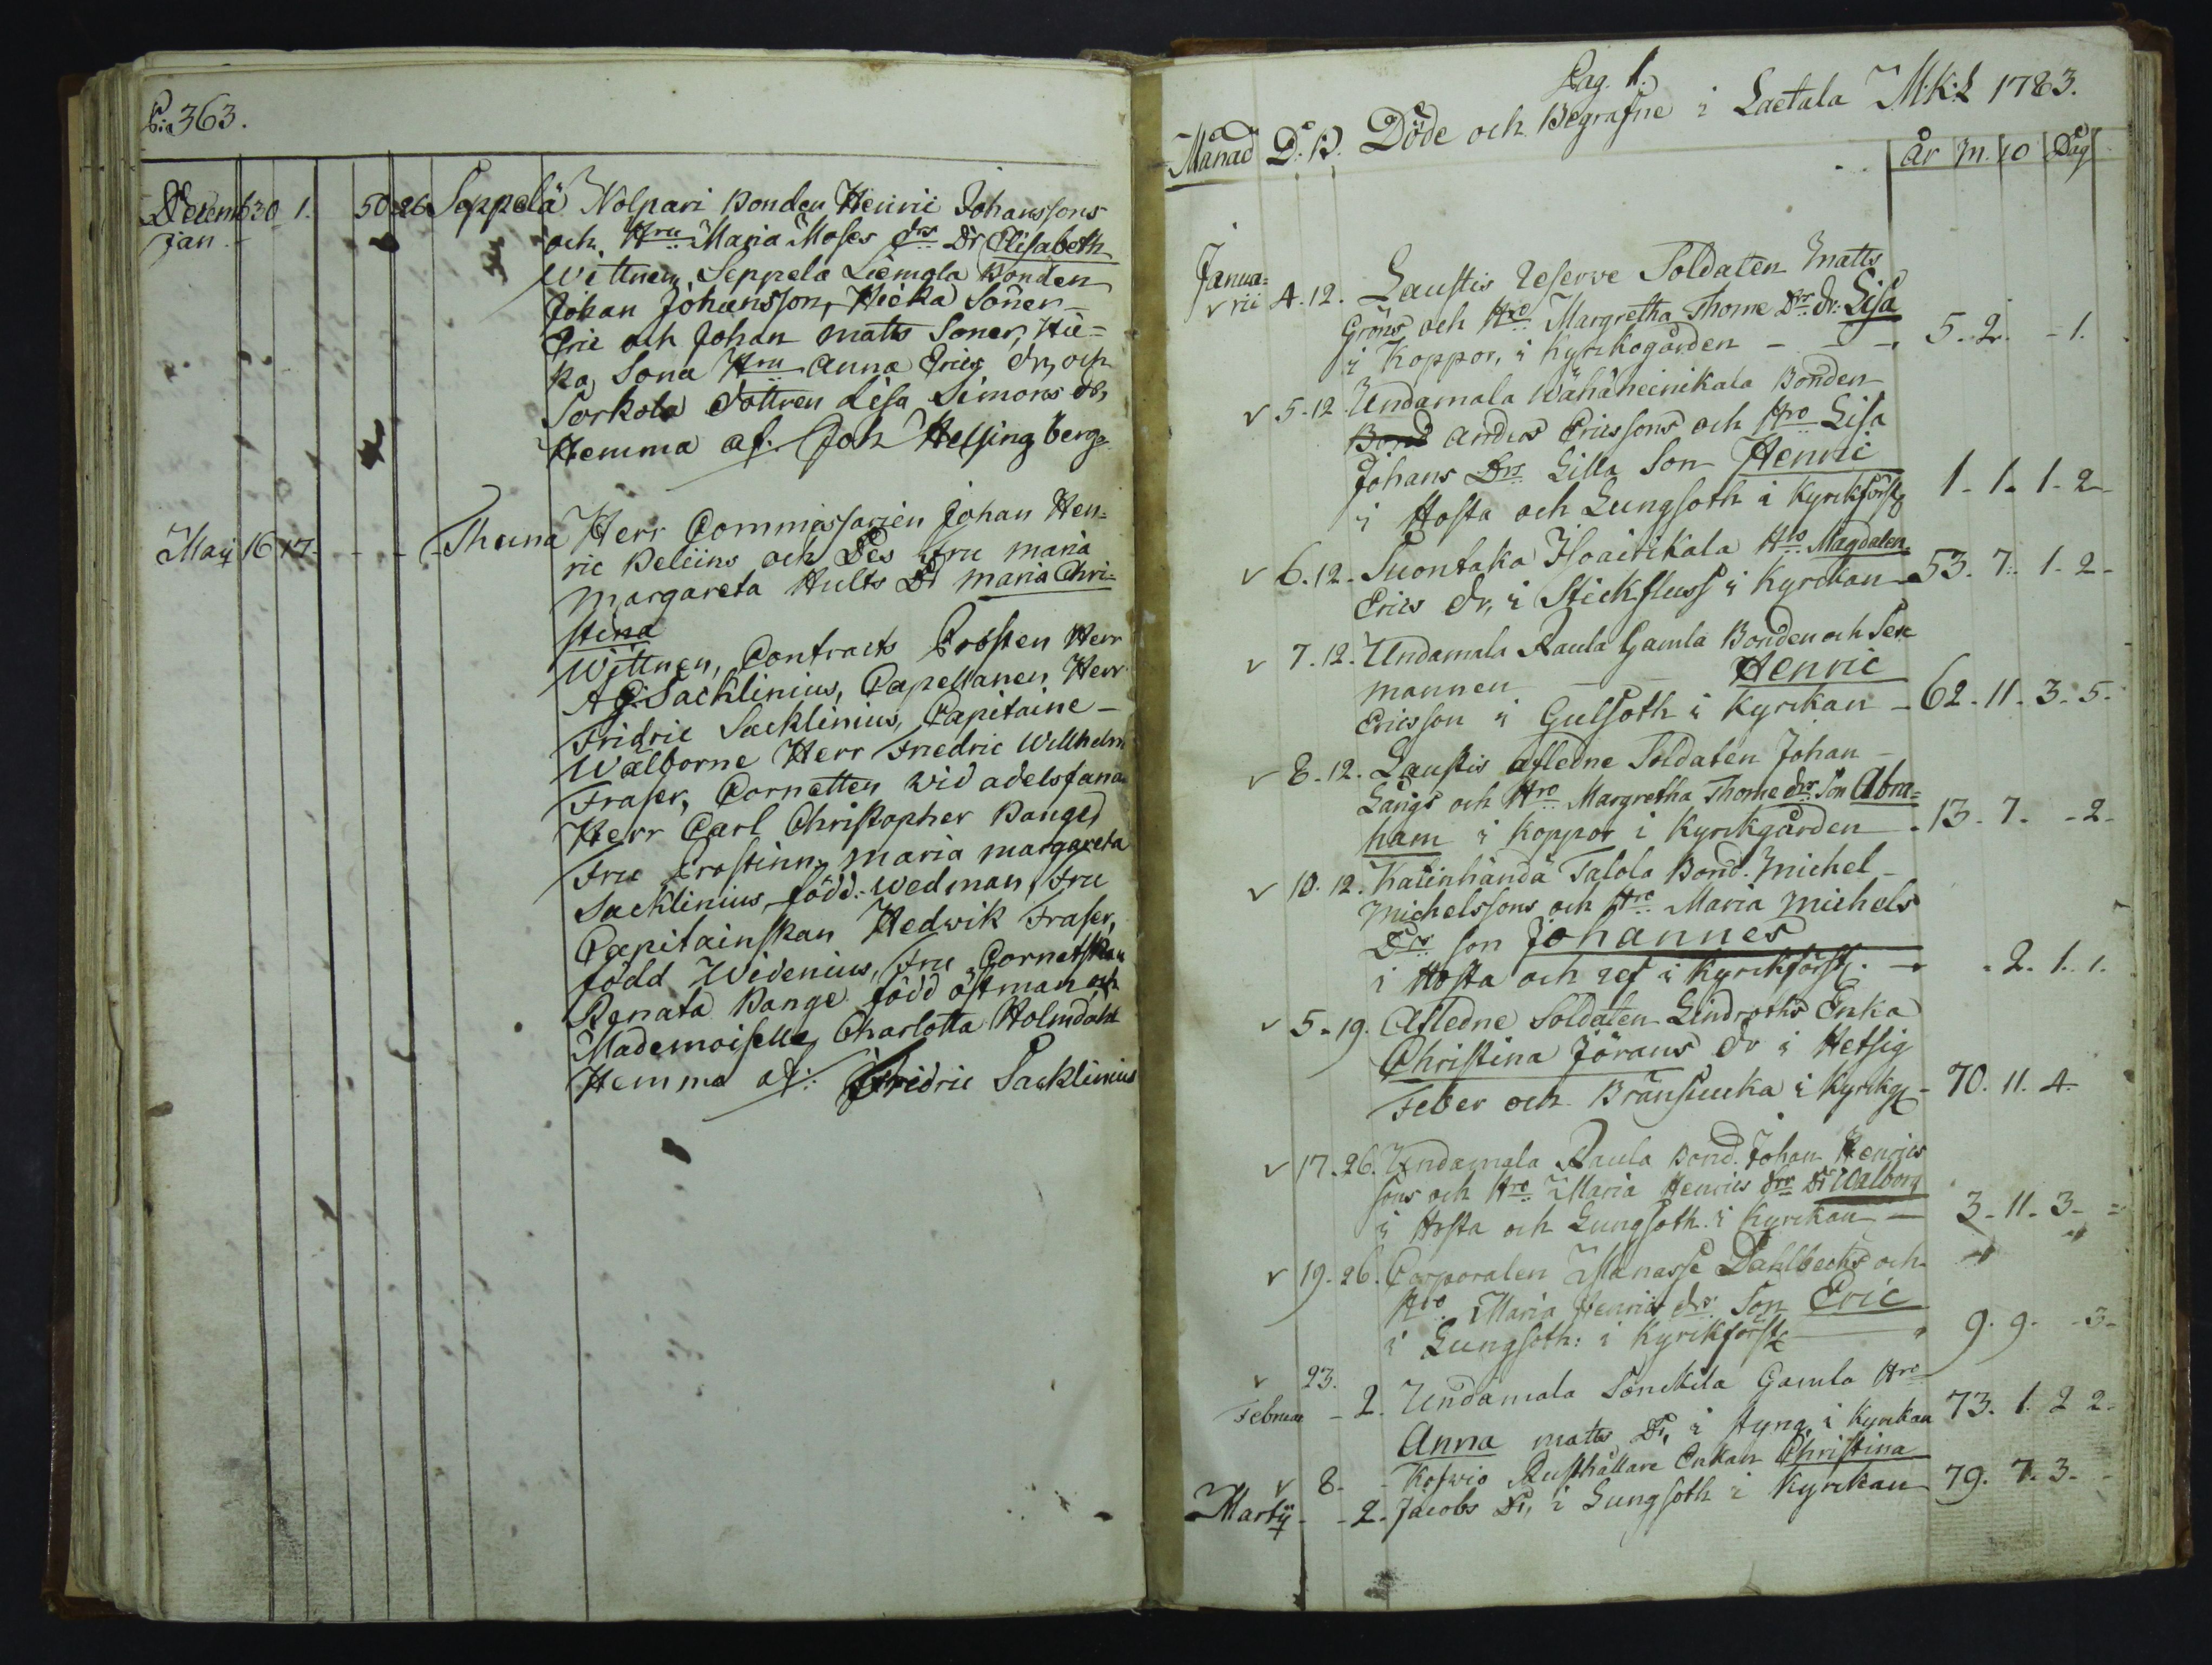 P: 363.
Decemb 30 1. 50 26 Seppälä Nolpari Bonden Henric Johanssons
Jan. och Hru Maria Moses drs Dr Elisabeth
Wittnen, Seppälä Liemola Bonden
Johan Johansson, Heika Soner
Eric och Johan Matts Soner, Hei=
ka Sona Hru Anna Erics dr, och
Sorkola dottren Lisa Simons dr,
Hemma af: Joh Helsingberg
Maij 16 17 - - - Thuna Herr Commissarien Johan Hen=
ric Deliins och Des Fru Maria
Margareta Hults Dr Maria Chri=
stina
Wittnen, Contracts Prosten Herr
A G: Sacklinius, Capellanen Herr
Fridric Sacklinius, Capitaine
Wälborne Herr Friedric Willhelm
Fraser, Cornetten wid adelsfana
Herr Carl Christopher Bange,
Fru Prostinn Maria Margareta
Sacklinius, född: Wedman, Fru
Capitainskan Hedwik Fraser,
född Widenius, Fru Cornetskan
Renata Bange född Östman och
Mademoiselle Charlotta Holmdahl
Hemma af: Fridric Sacklinius
Pag. 1.
Månad D: B. Döde och Begrafne i Laetala M:K:L 1783.
år M. 10 Dag
Janua=
rii 4. 12. Laustis Reserve Soldaten Matts
Gröns och Hro Margretha Thome Drs dr: Lisa
i Koppor, i Kyrckogården - - - 5. 2. - 1.
5. 12 Undamala Wähäheinikala Bonden
Bond Anders Ericssons och Hro Lisa
Johans Drs Lilla Son Henric
i Hosta och Lungsoth i Kyrckförstg 1. 1. 1. 2
6. 12. Suontaka Isoairikala Hto Magdalen
Erics dr, i Stickfluss i Kyrckan 53. 7. 1. 2
7. 12. Undamala Raula Gamla Bonden och Sex
mannen - - Henric
Ericsson i Gulsoth i Kyrckan - 62. 11. 3. 5.
8. 12. Laustis afledne Soldaten Johan
Långs och Hro Margretha Thome drs Son Abra=
ham i Koppor i Kyrckgården - 13. 7. - 2
10. 12. Katinhändä Talola Bond. Michel
Michelssons och Hro Maria Michels
Drs Son Johannes
i Hosta och ref i Kyrckförstg. - . 2. 1. 1.
5. 19. Afledne Soldaten Lindroths Enka
Christina Jörans dr i Hetsig
Feber och Bränsiucka i Kyrckg - 70. 11. 4.
17. 26. Undamala Raula Bond. Johan Henrics
sons och Hro Maria Henrics drs Dr Walborg
i Hosta och Lungsoth i Kyrckan - 3. 11. 3. =
19. 26. Corporalen Manasse Dahlbecks och
Hro Maria Henrics drs Son Eric
i Lungsoth: i Kyrckförstg 9. 9. - 3.
23.
Februar - 2. Undamala Sonckila Gamla Hro
Anna Matts Dr, i Styng, i Kyrckan 73. 1. 2 2.
8. - Koswio Rusthållare Enkan Christina
Martij - - 2. Jacobs Dr, i Lungsoth i Kyrckan 79. 7. 3. -